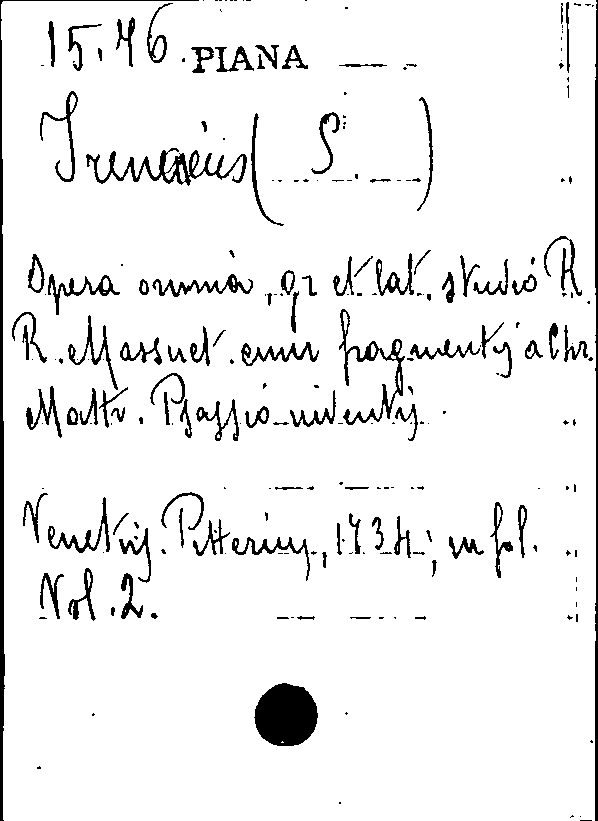 15.46. PIANA
Irenaeus (S.)
Opera omnia, gr et lat. studio R
R. Massuet. cum fragmentis a Chr.
Matth. Pfaffio inventis.
Venetiis. Pitterius, 1734; in fol.
Vol. 2.